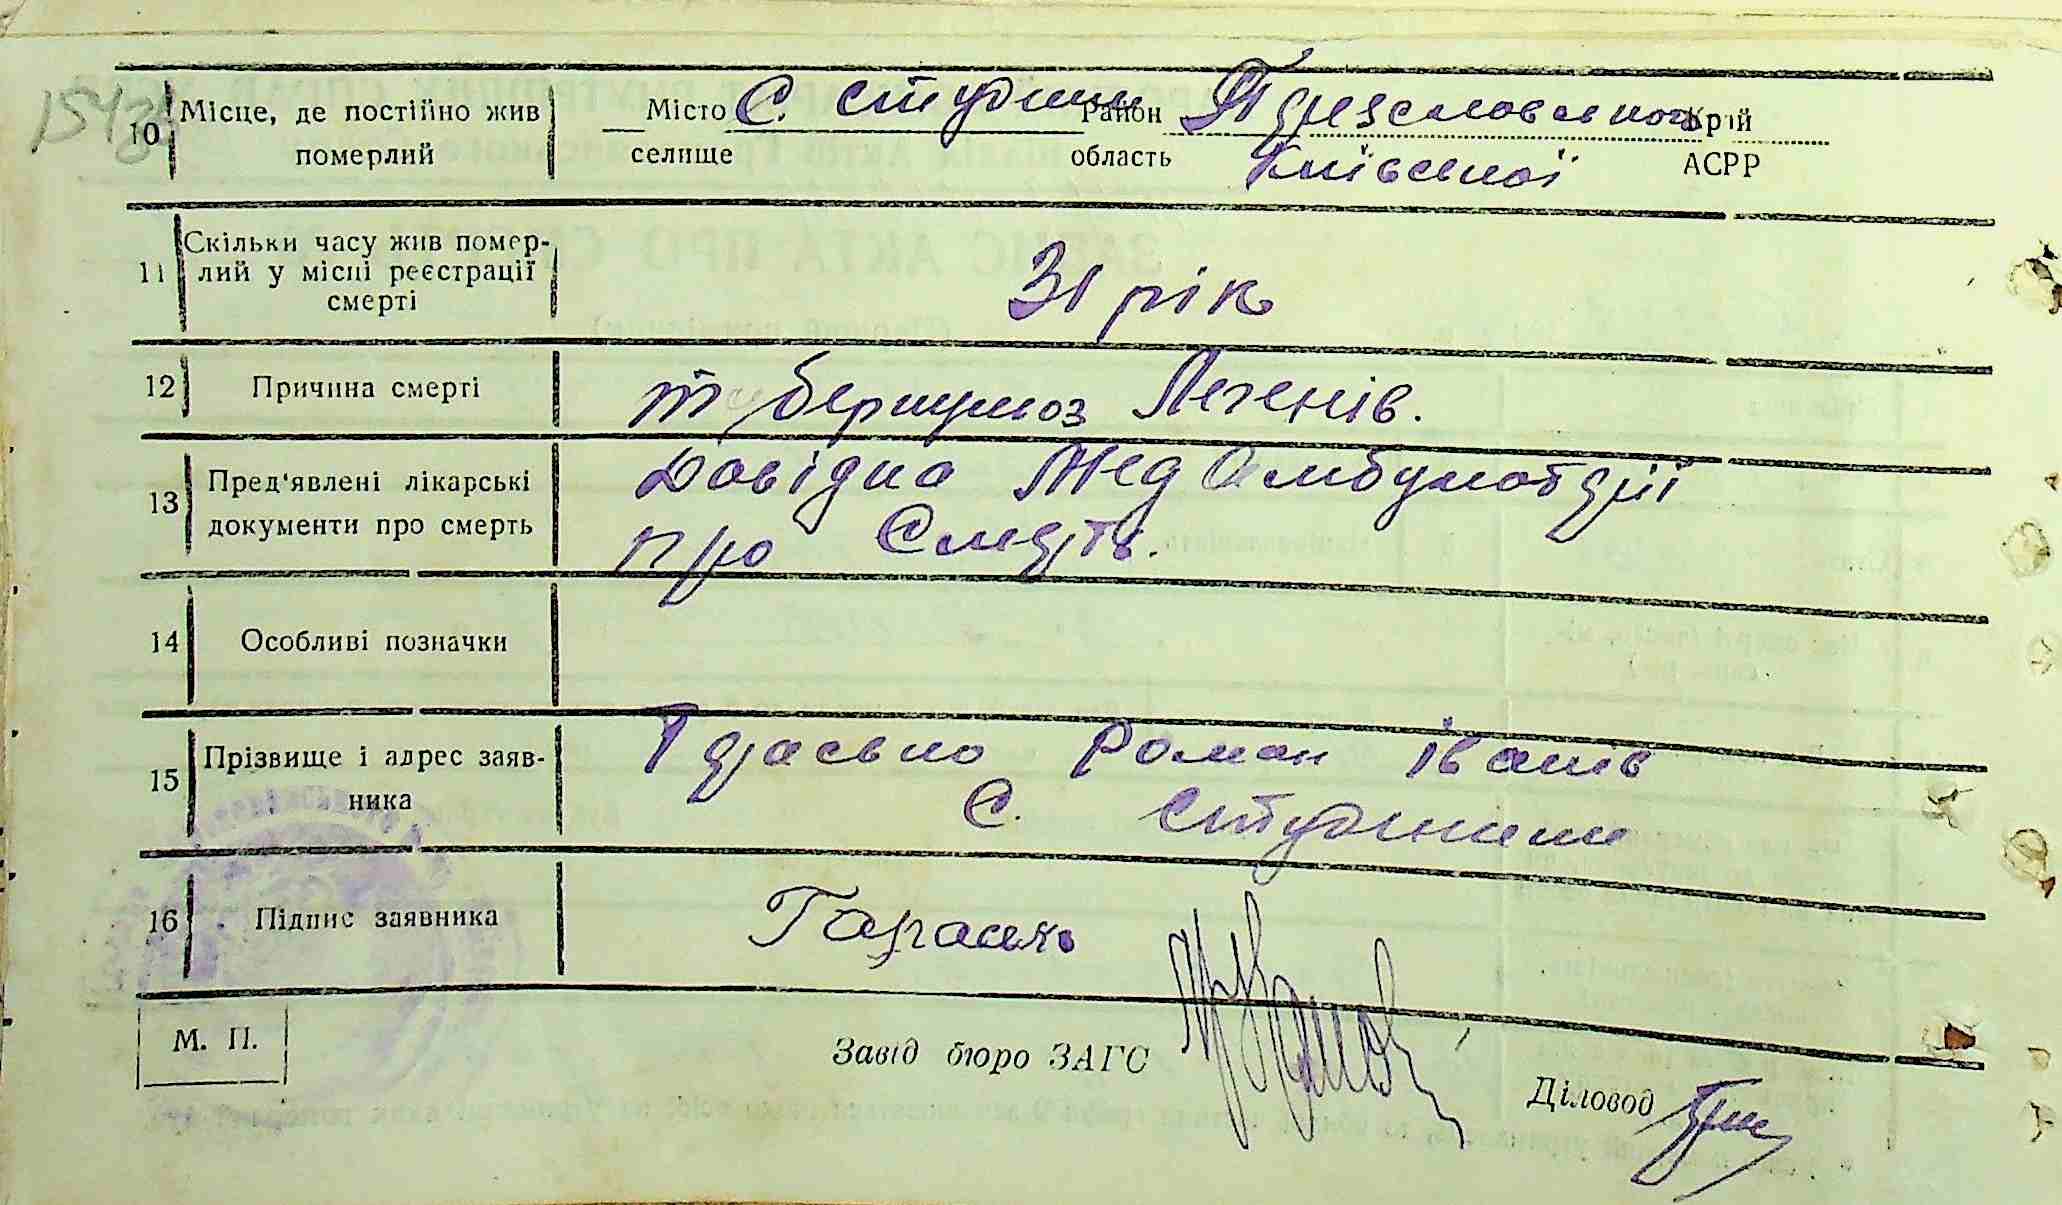 10 Місце, де постійно жив померлий
Місто С. Студники Район Переяславського Край
селище область Київської АСРР
11 Скільки часу жив померлий у місці реєстрації смерті
31 рік
12 Причина смерті
туберкульоз Легенів.
13 Пред'явлені лікарські документи про смерть
Довідка Мед Амбулаторії
про Смерть.
14 Особливі позначки
15 Прізвище і адрес заявника
Роман Іванів
С. Студники
16 Підпис заявника
М. П.
Завід бюро ЗАГС
Діловод